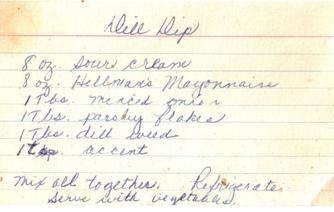 Dill Dip
8 oz. Sour Cream
8 oz. Hellman's Mayonnaise
1 Tbs. minced onion
1 Tbs. parsley flakes
1 Tbs. dill weed
1 accent
Mix all together. Refrigerate
Serve with vegetables.